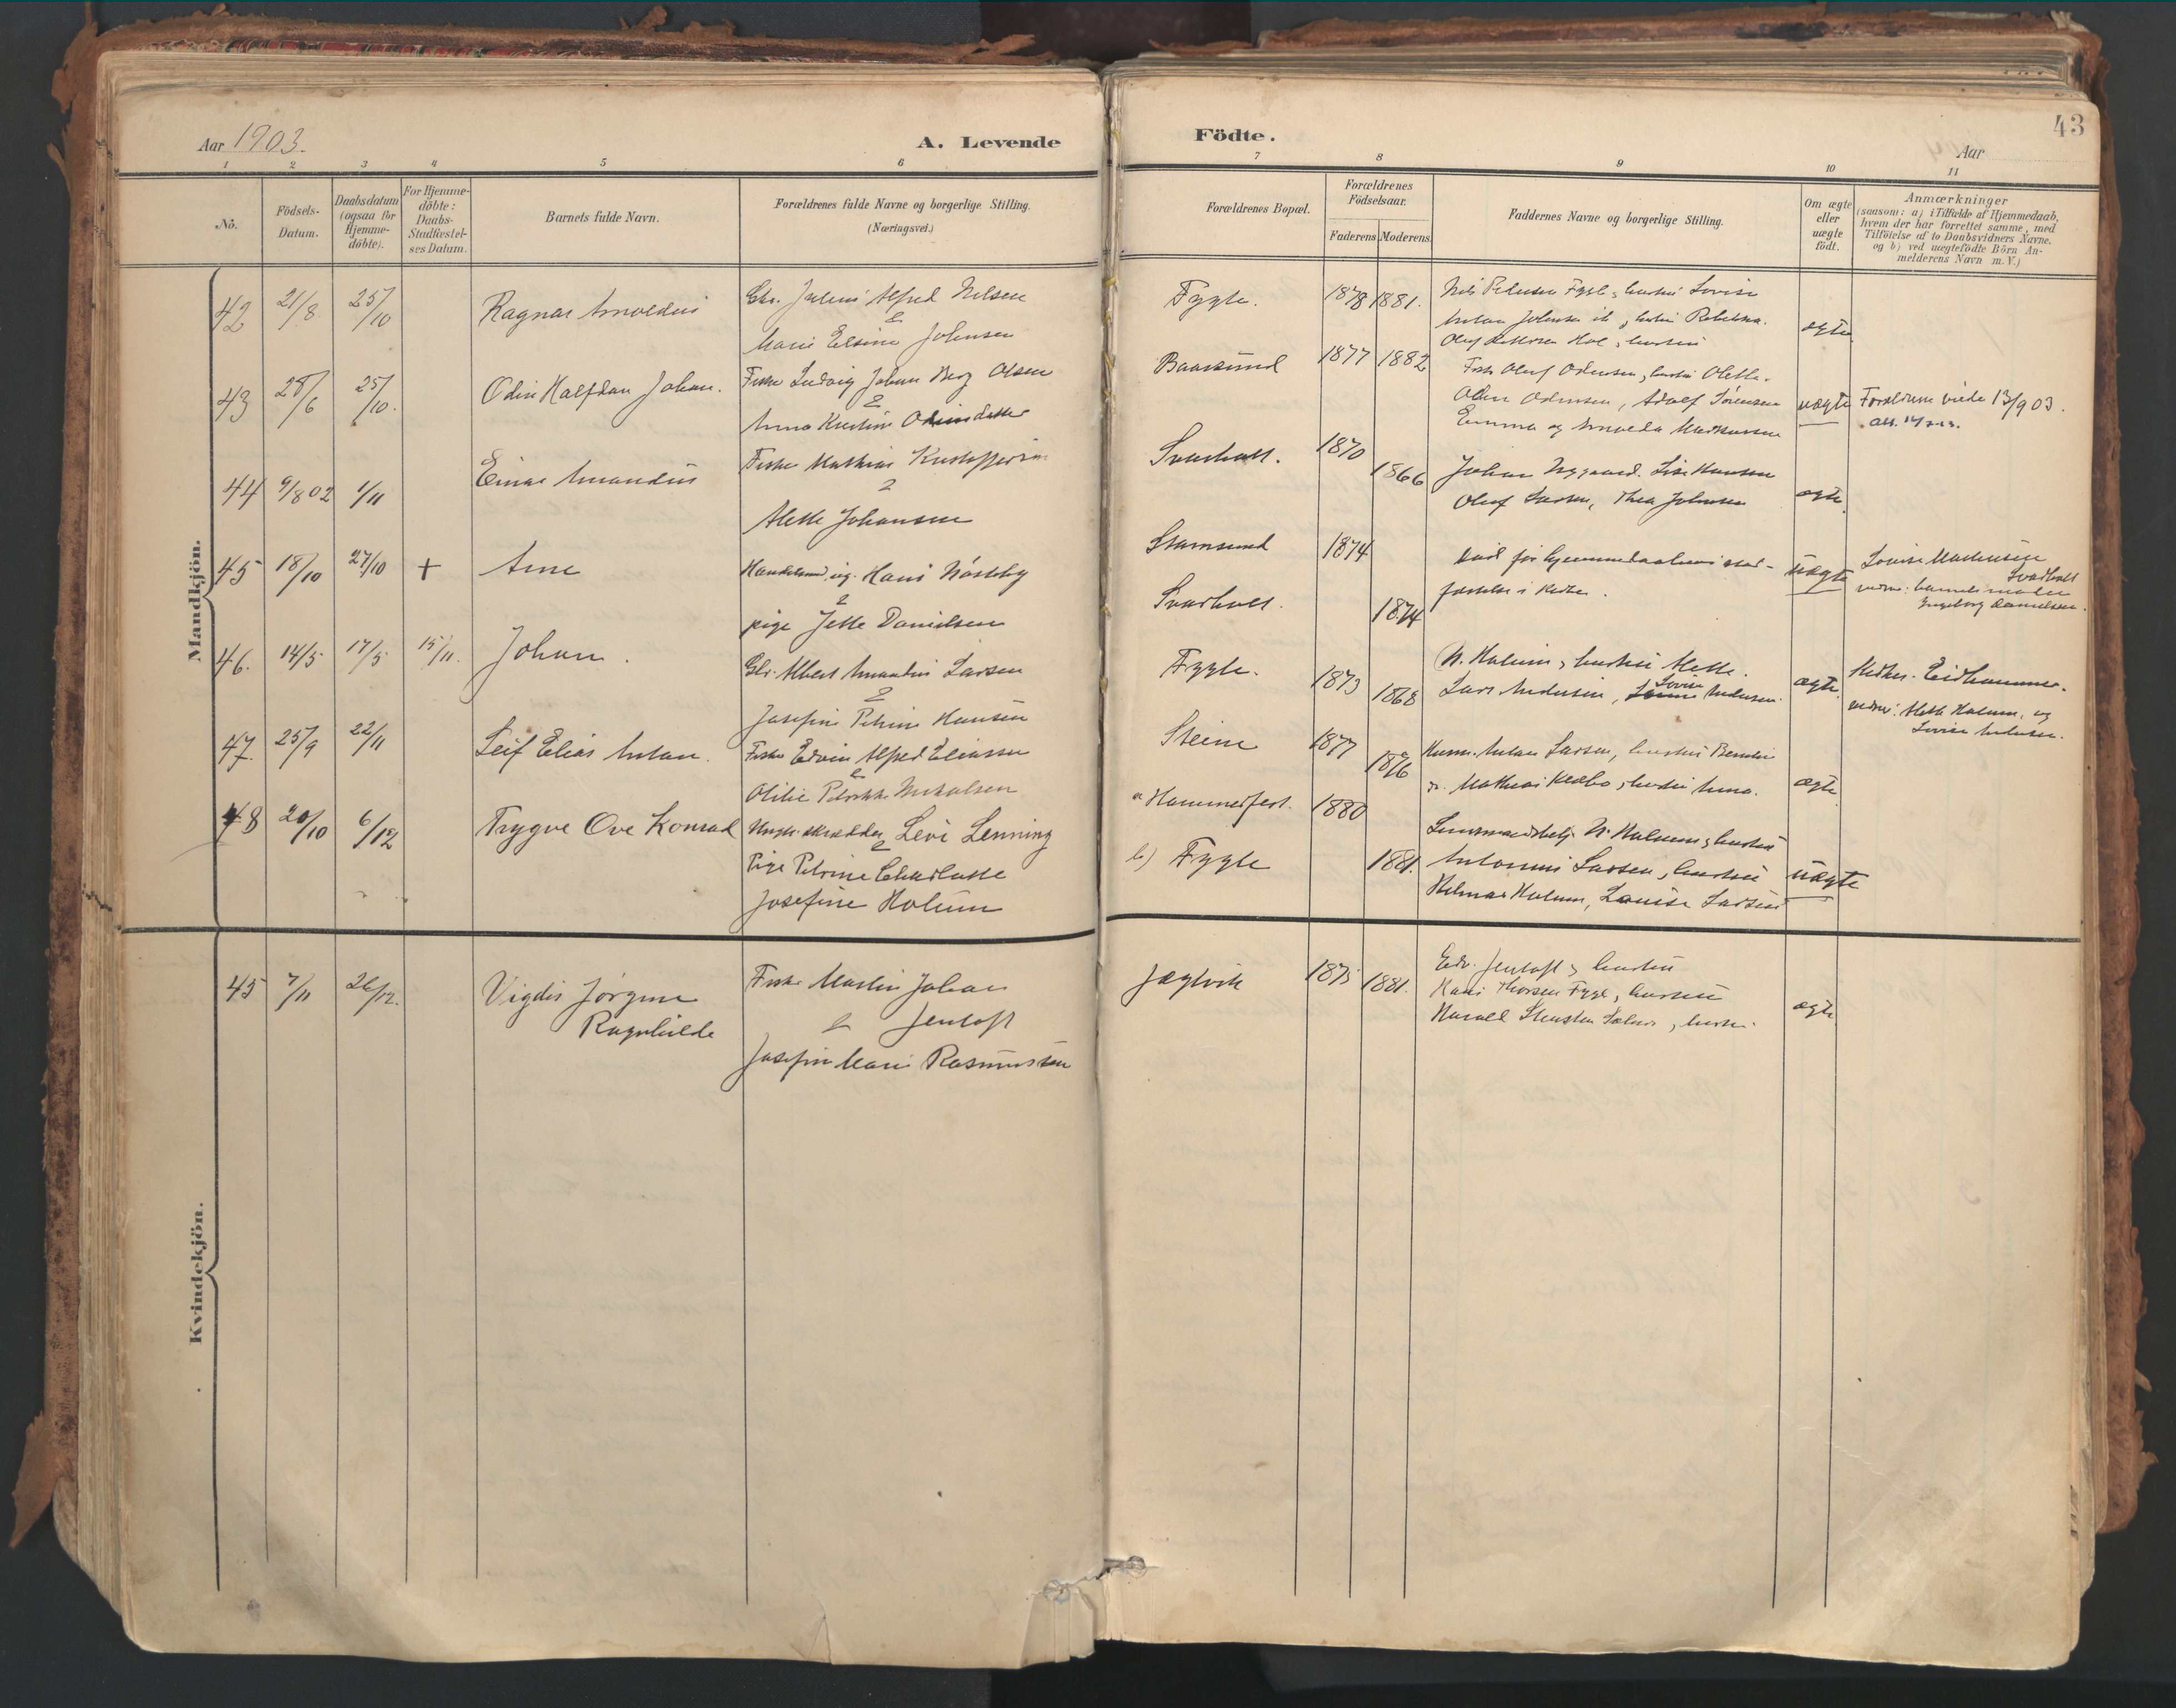 Aar 1903.
A. Levende
Födte.
43
Aar
1 2 3 4 5 6 7 8 9 10 11
No.
Födsels-
Datum.
Daabsdatum
(ogsaa for
Hjemme-
döbte).
For Hjemme-
döbte:
Daabs-
Stadfæstel-
ses Datum.
Barnets fulde Navn.
Forældrenes fulde Navne og borgerlige Stilling.
(Næringsvei.)
Forældrenes Bopæl.
Forældrenes
Födselsaar.
Faderens Moderens
Faddernes Navne og borgerlige Stilling.
Om ægte
eller
uægte
födt.
Anmærkninger
(saasom: a) i Tilfælde af Hjemmedaab,
hvem der har forrettet samme, med
Tilföielse af to Daabsvidners Navne,
og b) ved uægtefödte Börn An-
melderens Navn m. V.)
Mandkjön.
42 21/8 25/10 Ragnar Arnoldus
Julius Alfred Nilsen
&
Marie Elsine Johnsen
Fygle. 1878 1881.
Nils Petersen Fygle, hustru Lovise
Anton Johnsen ib, hustru Rebekka.
Oluf Hol, hustru
ægte
43 28/6 25/10. Odin Halfdan Johan.
Fisker Ludvig Johan Berg Olsen
&
Anna Kristine Odinsdatter
Baarsund 1877 1882
Fisk. Oluf Odinsen, hustru Olette.
Odin Odinsen, Adolf Sörensen
Emma og Arnolda Markussen
uægte
Forældrene viede 13/9 03.
44 9/8 02 1/11 Einar Amandus
Fisker Mathias Kristoffersen
&
Alette Johansen
Svarholt. 1870
1866
Johan Nygaard. Lise Hansen
Oluf Larsen, Thea Johnsen
ægte
45 18/10 27/10 + Arne
Hans Nöstby
&
pige Jette Danielsen
Stamsund 1874
Svarholt. 1874
död för hjemmedaabens stad-
fæstelse i Kirke.
uægte
Lovise Mathisen
Svarholt
Ingeborg Danielsen.
46. 14/5 17/5 15/11. Johan.
Albert Amandus Larsen
&
Josefine Petrine Hansen
Fygle. 1873
1868
N. Holum, hustru Alette.
Lovise
Lars Andersen, Andersen.
ægte
Kirkes. Eidhammer.
vidner: Alette Holum, og
Lovise Andersen.
47. 25/9 22/11 Leif Elias Antan.
Fisker Edvin Alfred Eliassen
&
Otilie Nikolsen
Steine 1877
1876
Anton Larsen, hustru
Mathias hustru Anna.
ægte
48 20/10 6/12 Trygve Ove Konrad
Ungk. skrædder Levi Lenning
&
Pige Petrine Charlotte
Josefine Holum
a Hammerfest. 1880
b) Fygle 1881.
N. Holum, hustru
Antonius Larsen, hustru
Hilmar Holum, Louise Larsen
uægte
Kvindekjön.
45 7/11 26/12. Vigdis Jörgine
Ragnhilde
Fisker Martin Johan
& Jentoft
Josefine Marie Rasmussen
Jægtvik 1875 1881.
Edv. Jentoft, hustru
Hans Thorsen Fygle, hustru
Harald hustru.
ægte